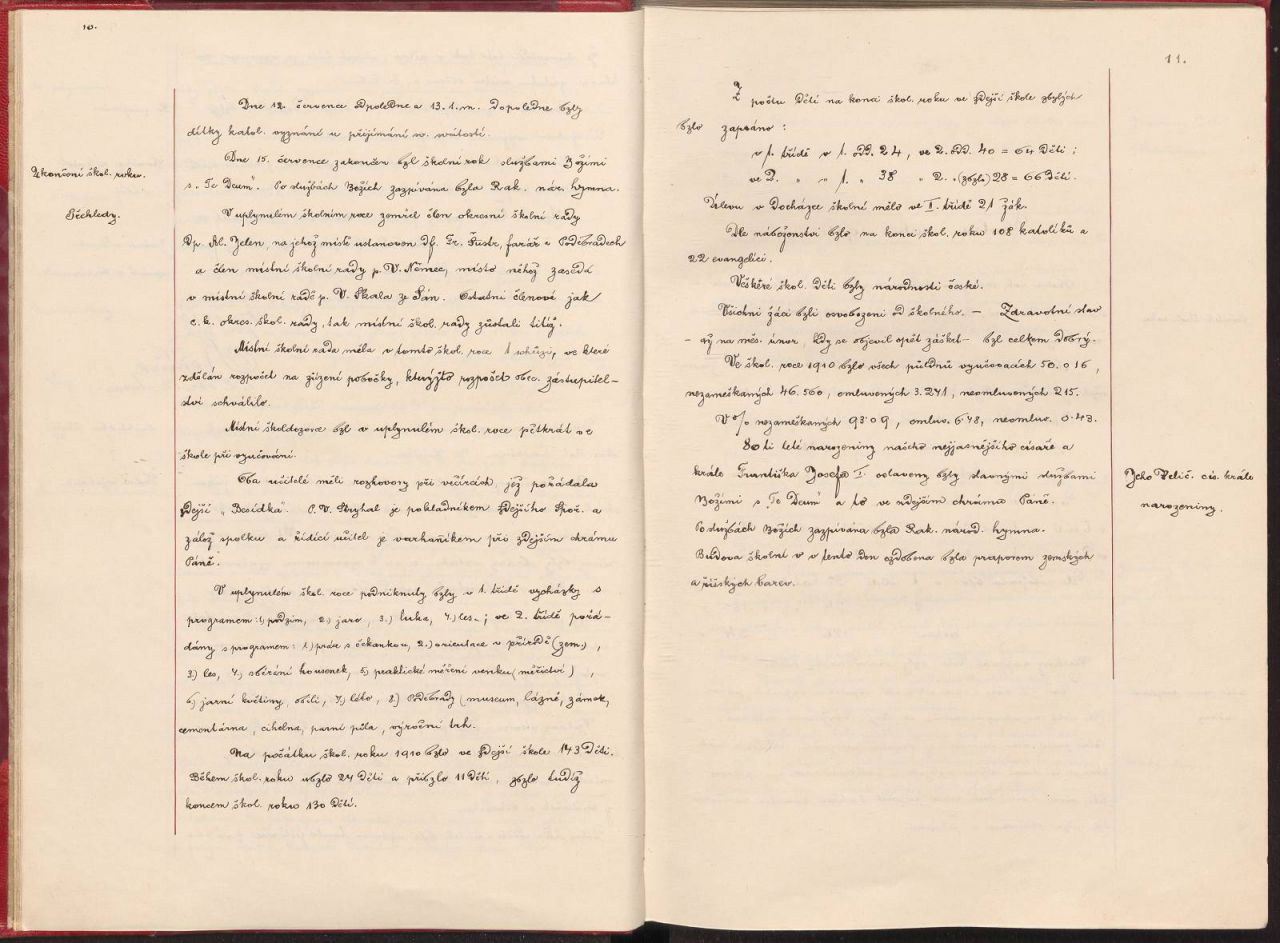 10.
Dne 12. července odpoledne a 13. t. m. dopoledne byly
dítky katol. vyznání u přijímání sv. svátostí.
Zakončení škol. roku.
Dne 15. července zakončen byl školní rok službami Božími
s „Te Deum“. Po službách Božích zazpívána byla Rak. nár. hymna.
Přehledy.
V uplynulém školním roce zemřel člen okresní školní rady
Dp. Al. Jelen, na jehož místě ustanoven Df. Fr. Šustr, farář v Poděbradech
a člen místní školní rady p. V. Němec, místo něhož zasedá
v místní školní radě p. V. Skala ze Sán. Ostatní členové jak
c. k. okres. škol. rady, tak místní škol. rady zůstali titíž.
Místní školní rada měla v tomto škol. roce 1 schůzi, ve které
zdělán rozpočet na zřízení pobočky, kterýžto rozpočet obec. zástupitel-
stvo schválilo.
Místní školdozorce byl v uplynulém škol. roce pětkrát ve
škole při vyučování.
Oba učitelé měli rozhovory při večírcích, jež pořádala
zdejší „Besídka“. P. V. Stuhal je pokladníkem zdejšího Spoř. a
zálož. spolku a řídící učitel je varhaníkem při zdejším chrámu
Páně.
V uplynulém škol. roce podniknuty byly v 1. třídě vycházky s
programem: 1.) podzim, 2.) jaro, 3.) luka, 4.) les.; ve 2. třídě pořá-
dány s programem: 1.) práce s čekankou, 2.) orientace v přírodě (zem.),
3.) les, 4.) sbírání housenek, 5.) praktické měření venku (měřictví),
6.) jarní květiny, obilí, 7.) léto, 8.) Poděbrady (museum, lázně, zámek,
cementárna, cihelna, parní pila, výroční trh.
Na počátku škol. roku 1910 bylo ve zdejší škole 143 dětí.
Během škol. roku ubylo 24 dětí a přibylo 11 dětí, zbylo tudíž
koncem škol. roku 130 dětí.
11.
Z počtu dětí na konci škol. roku ve zdejší škole zbylých
bylo zapsáno:
v 1. třídě v 1. odd. 24, ve 2. odd. 40 = 64 dětí;
ve 2. „ „ 1. „ 38 „ 2. „ (zbylo) 28 = 66 dětí.
Úlevu v docházce školní mělo ve II. třídě 21 žák.
Dle náboženství bylo na konci škol. roku 108 katolíků a
22 evangelíci.
Veškeré škol. děti byly národnosti české.
Všichni žáci byli osvobozeni od školného. – Zdravotní stav
– vyj. na měs. únor, kdy se objevil opět záškrt – byl celkem dobrý.
Ve škol. roce 1910 bylo všech půldnů vyučovacích 50.016,
nezameškaných 46.560, omluvených 3.241, neomluvených 215.
V % nezameškaných 93·09, omluv. 6·48, neomluv. 0·43.
Jeho Velič. cís. krále
narozeniny.
80ti leté narozeniny našeho nejjasnějšího císaře a
krále Františka Josefa I. oslaveny byly slavnými službami
Božími s „Te Deum“ a to ve zdejším chrámu Páně.
Po službách Božích zazpívána byla Rak. národ. hymna.
Budova školní v tento den ozdobena byla praporem zemských
a říšských barev.